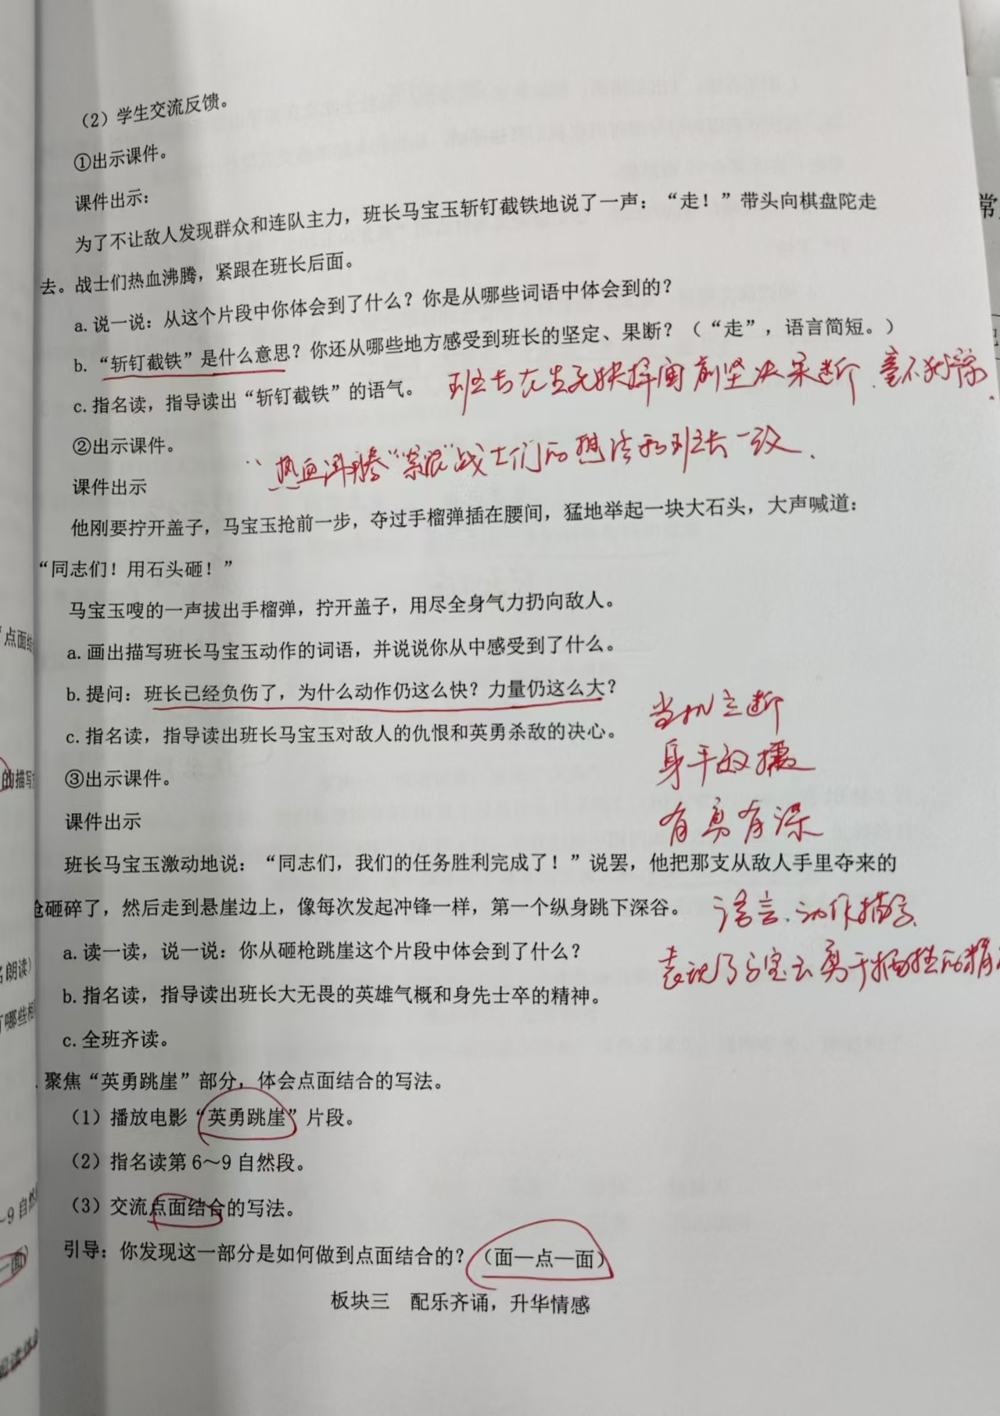 （2）学生交流反馈。
①出示课件。
课件出示：
为了不让敌人发现群众和连队主力，班长马宝玉斩钉截铁地说了一声：“走！”带头向棋盘陀走
去。战士们热血沸腾，紧跟在班长后面。
a.说一说：从这个片段中你体会到了什么？你是从哪些词语中体会到的？
b.“斩钉截铁”是什么意思？你还从哪些地方感受到班长的坚定、果断？（“走”，语言简短。）
c.指名读，指导读出“斩钉截铁”的语气。
班长在生死抉择面前坚决果断、毫不犹豫、
②出示课件。
“热血沸腾”“紧跟”战士们的想法和班长一致、
课件出示
他刚要拧开盖子，马宝玉抢前一步，夺过手榴弹插在腰间，猛地举起一块大石头，大声喊道：
“同志们！用石头砸！”
马宝玉嗖的一声拔出手榴弹，拧开盖子，用尽全身气力扔向敌人。
a.画出描写班长马宝玉动作的词语，并说说你从中感受到了什么。
b.提问：班长已经负伤了，为什么动作仍这么快？力量仍这么大？
当机立断
c.指名读，指导读出班长马宝玉对敌人的仇恨和英勇杀敌的决心。
身手敏捷
③出示课件。
课件出示
有勇有谋
班长马宝玉激动地说：“同志们，我们的任务胜利完成了！”说罢，他把那支从敌人手里夺来的
枪砸碎了，然后走到悬崖边上，像每次发起冲锋一样，第一个纵身跳下深谷。
语言、动作描写
a.读一读，说一说：你从砸枪跳崖这个片段中体会到了什么？
表现了马宝玉勇于牺牲的精
b.指名读，指导读出班长大无畏的英雄气概和身先士卒的精神。
c.全班齐读。
.聚焦“英勇跳崖”部分，体会点面结合的写法。
（1）播放电影“英勇跳崖”片段。
（2）指名读第6～9自然段。
（3）交流点面结合的写法。
引导：你发现这一部分是如何做到点面结合的？（面—点—面）
板块三 配乐齐诵，升华情感